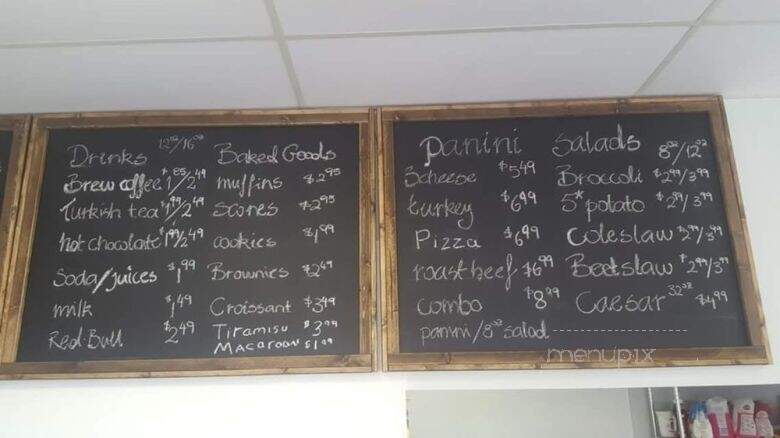 Drinks 12oz/16oz
Brew coffee $1.85/2.49
Turkish tea $1.99/2.49
hot chocolate $1.99/2.49
Soda/juices $1.99
milk $1.49
Red Bull $2.49
Baked Goods
muffins $2.95
scones $2.95
cookies $1.99
Brownies $2.49
Croissant $3.49
Tiramisu $3.99
Macaroon $1.99
panini
3cheese $5.49
turkey $6.99
Pizza $6.99
roast beef $6.99
combo $8.99
panini/8oz salad
Salads 8oz/12oz
Broccoli $2.99/3.99
5* potato $2.99/3.99
Coleslaw $2.99/3.99
Beetslaw $2.99/3.99
Caesar 32oz $4.99
menupix